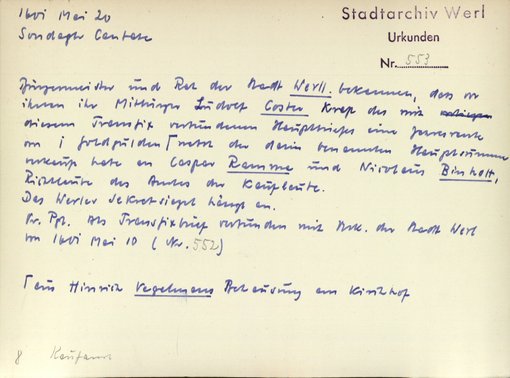 1601 Mai 20
Sondagh Cantate
Stadtarchiv Werl
Urkunden
Nr. 553
Bürgermeister und Rat der Stadt Werll bekennen, dass vor
ihnen ihr Mitbürger Ludolf Coster Kraft des mit
diesem Transfix verbundenen Hauptbriefes eine Jahresrente
von 1 Goldgulden ⌈ nebst der darin benannten Hauptsumme
verkauft hat an Caspar Ramme und Nicolaus Binholt,
Richtleute des Amtes der Kaufleute.
Das Werler Sekretsiegel hängt an.
Or. Pgt. Als Transfixbrief verbunden mit Urk. der Stadt Werl
von 1601 Mai 10 (Nr. 552)
⌈ aus Hinrich Vegelmans Behausung am Kirchhof
8 Kaufamt